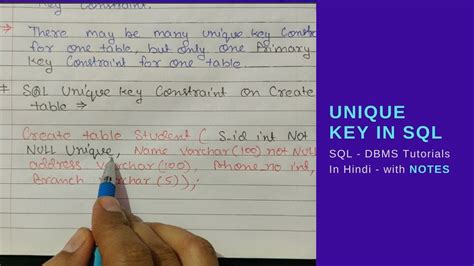 Key Constraint.
⇒ There may be many unique key Constr
for one table, but only one Primary
Key Constraint for one table.
⇒ SQL Unique Key Constraint on Create
table ⇒
Create table Student ( S_id int Not
NULL Unique, Name varchar(100) not NULL
address varchar(100), Phone_no int,
Branch varchar(5));
UNIQUE
KEY IN SQL
SQL - DBMS Tutorials
In Hindi - with NOTES